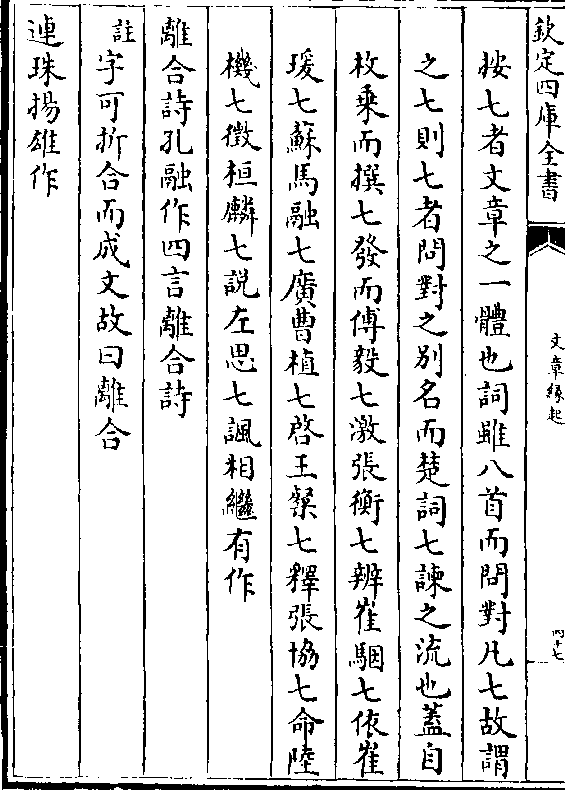 欽定四庫全書
文章縁起
四十七
按七者文章之一體也詞雖八首而問對凡七故謂
之七則七者問對之别名而楚詞七諫之流也蓋自
枚乗而撰七發而傅毅七激張衡七辨崔駰七依崔
瑗七蘇馬融七廣曹植七啓王粲七釋張協七命陸
機七徴桓麟七説左思七諷相繼有作
離合詩孔融作四言離合詩
註字可拆合而成文故曰離合
連珠揚雄作